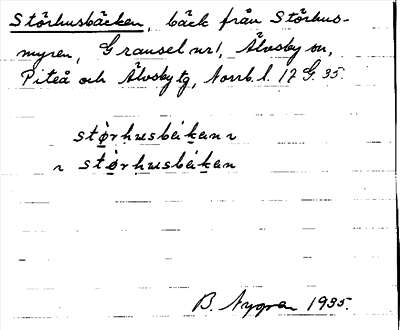 Störhusbäcken, bäck från Störhus-
myren, Granselnr 1, Älvsby sn,
Piteå och Älvsby tg, Norrb. l. 12 G. 35.
stø̀rhusbäkan ~
~ stø̀rhusbäkan
B. Nygren 1935.